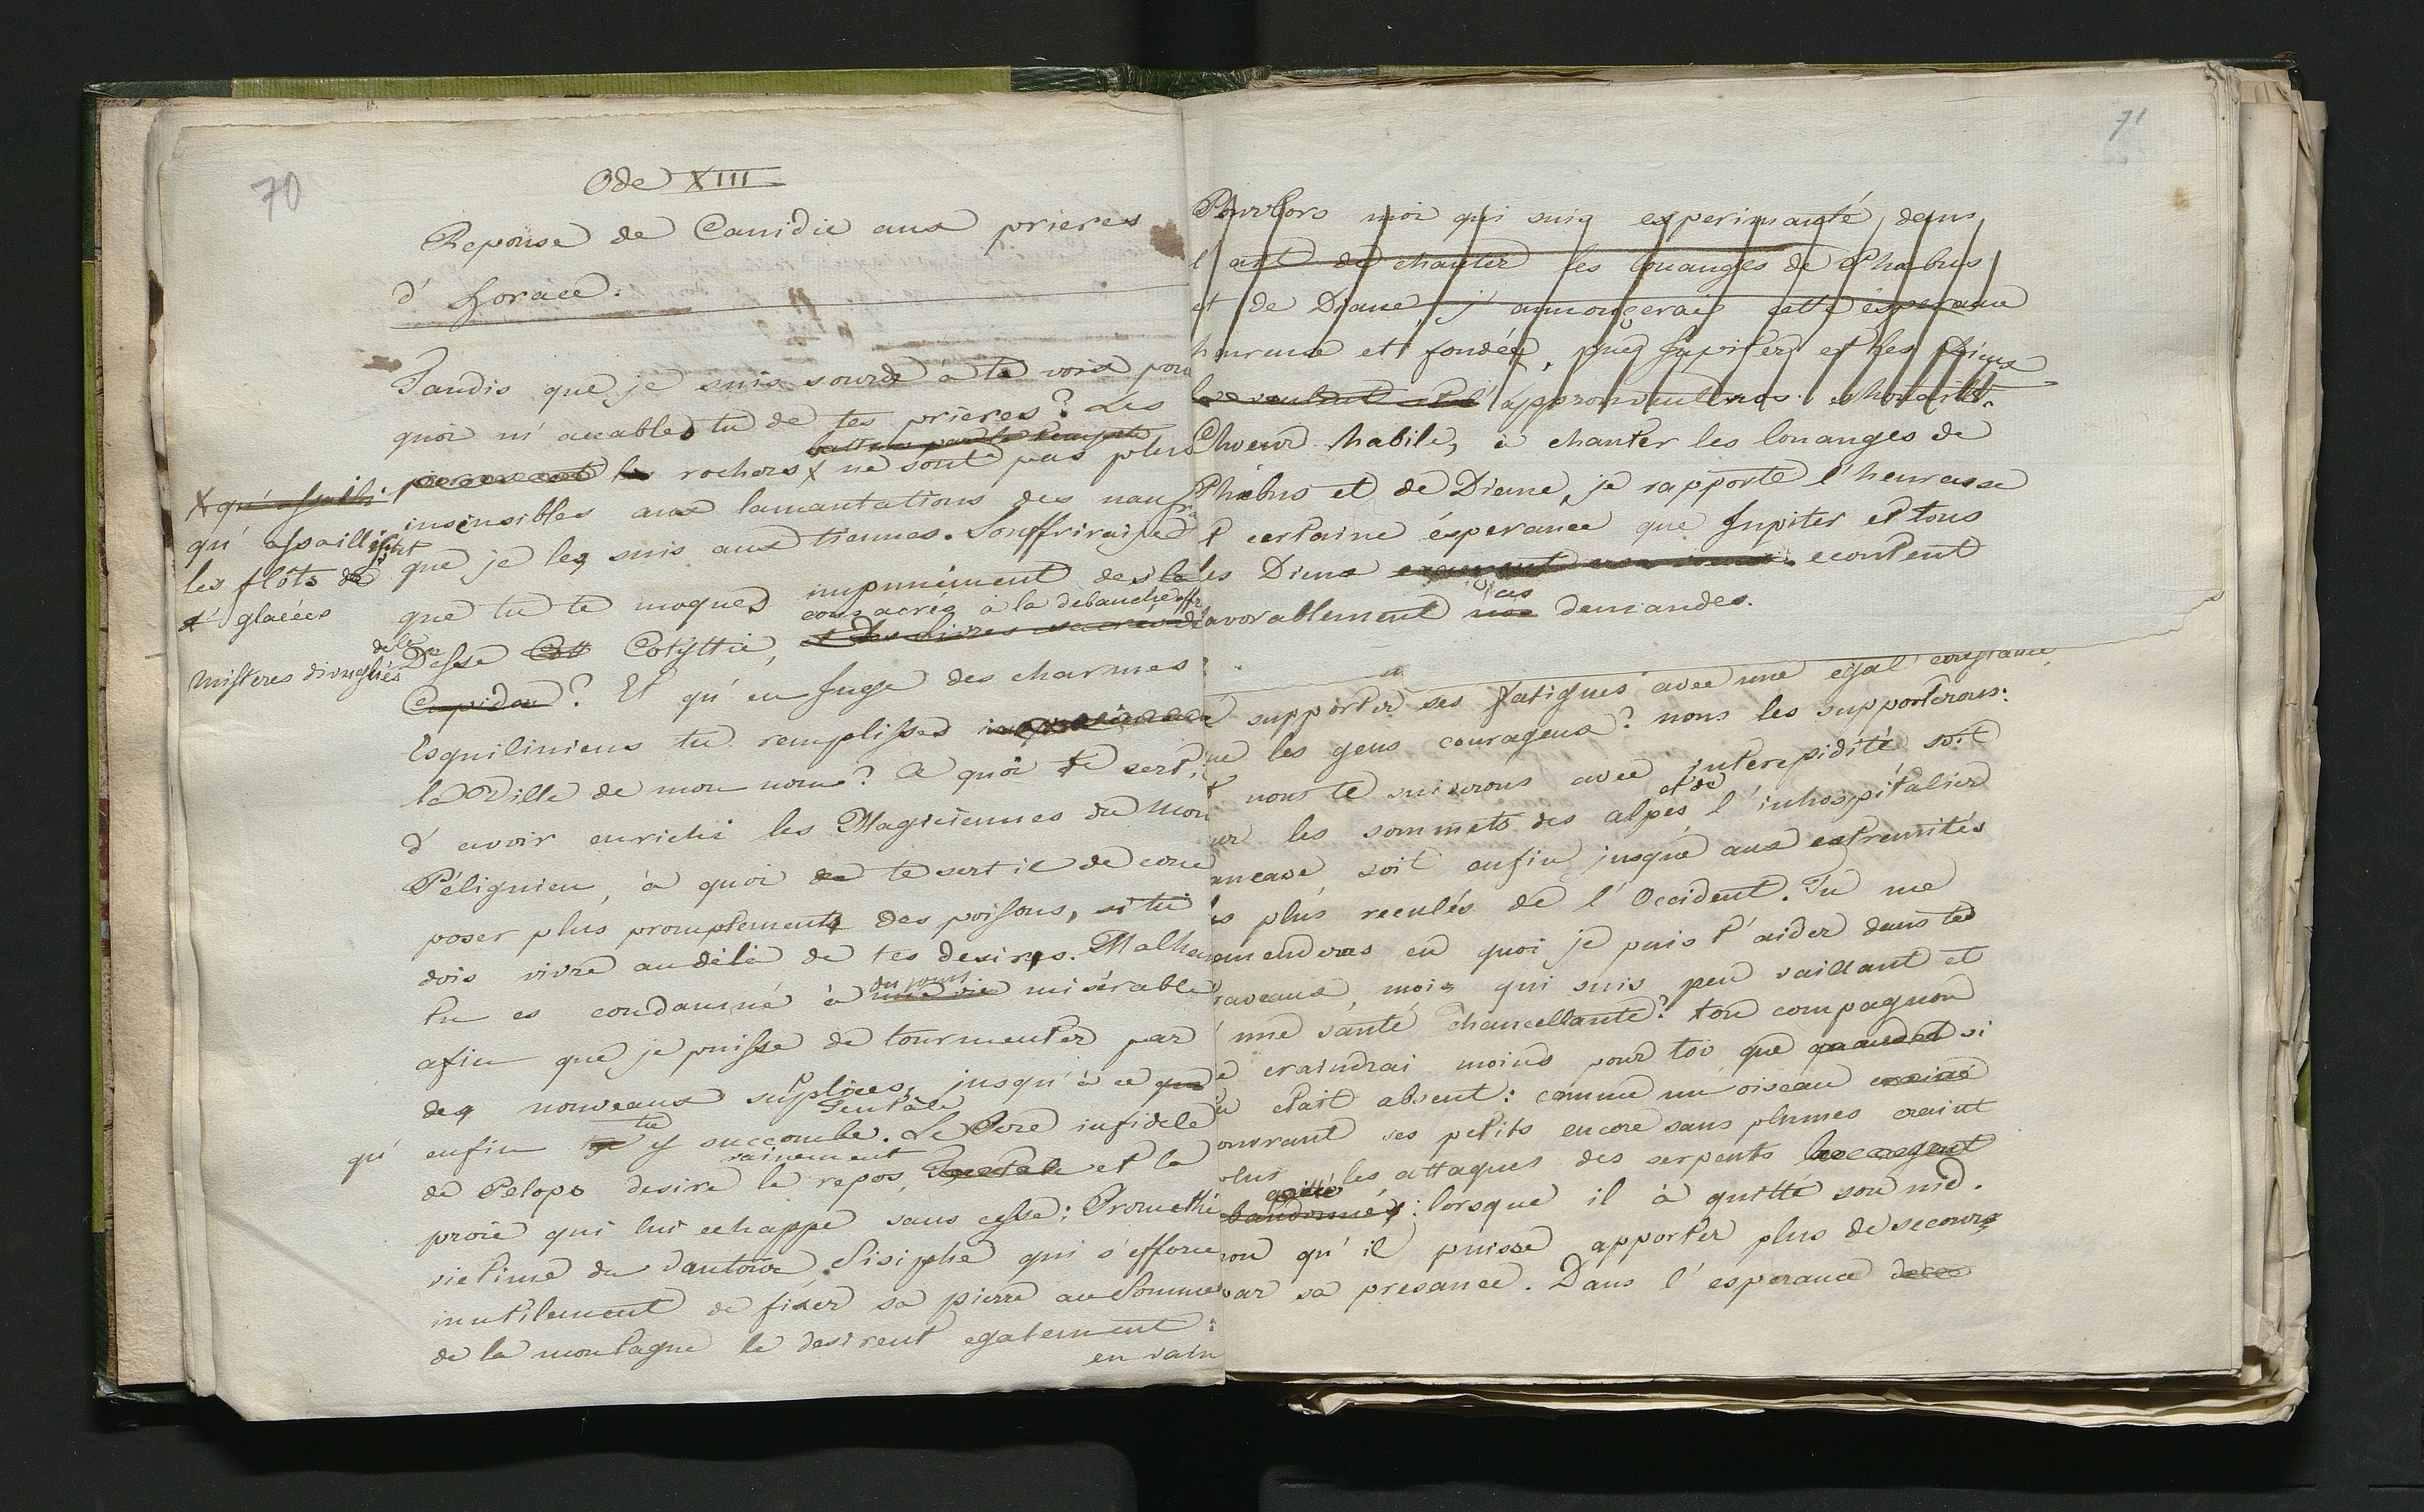 70
Ode XIII
Reponse de Canidie aux prieres
d' Horace.
Tandis que je suis sourde à ta voix pour
quoi m' accables tu de tes prieres? Les
battus par la tempete
rochers x ne sont pas plus
x qu' assailli
insensibles aux lamantations des naufra
qu' assaillissent
que je les suis aux tiennes. Souffriraije
les flots de
d' glacées
que tu te moques impunément de la
consacrés à la debauche
Desse Cotyttie,
misteres divugliés
Cupidon? Et qu' en Juge des charmes
Esquiliniens tu remplisses
la Ville de mon nom? A quoi te sert il
d' avoir enrichi les Magiciennes du Mon
Pélignien, à quoi te sert il de com
poser plus promptement des poisons, si tu
dois vivre au déla de tes desirs. Malheu
des jours
tu es condamné à une vie misérable
afin que je puisse de tourmenter par
des nouveaux suplices, jusqu' à ce que
Tentale
tu
qu' enfin y succombe. Le Pere infidele
vainement
de Pelops desire le repos, Tentale et la
proie qui lui echappe sans cesse; Promethé
victime du vautour Sisiphe qui s' efforce
inutilement de fixer sa pierre au Somme
de la montagne le desirent egalement :
en vain
71
Pour lors moi qui suis experimanté dans
l' art de chanter les louanges de Phabus
et de Diane, j' annoncerais cette ésperance
heureuse et fondée, que Jupiter et les Dieux
approuvent nos
Choeur habile, à chanter les louanges de
Phébus et de Diane, je rapporte l' heurasse
t certaine ésperance que Jupiter et tous
les Dieux ecoutent
ces
favorablement nos demandes.
à supporter ses fatigues avec une egal constance
que les gens courageux? nous les supporterons:
t nous te suiverons avec interepidité soit
et de
ur les sommets des alpes l' inhospitalier
aucase soit enfin jusqué aux extremités
es plus reculés de l' Occident. Tu me
emenderas en quoi je puis t' aider dans tes
raveaux, moi qui suis peu vaillant et
d' une santé chancellante? ton compagnon
e craindrai moins pour toi que quand si
u etait absent: comme un oiseau
ouvrant ses petits encore sans plumes craint
plus les attaques des serpents
quitté
abandonnés: lorsque il à quitté son nid.
non qu' il puisse apporter plus de secours
par sa presance. Dans l' esperance